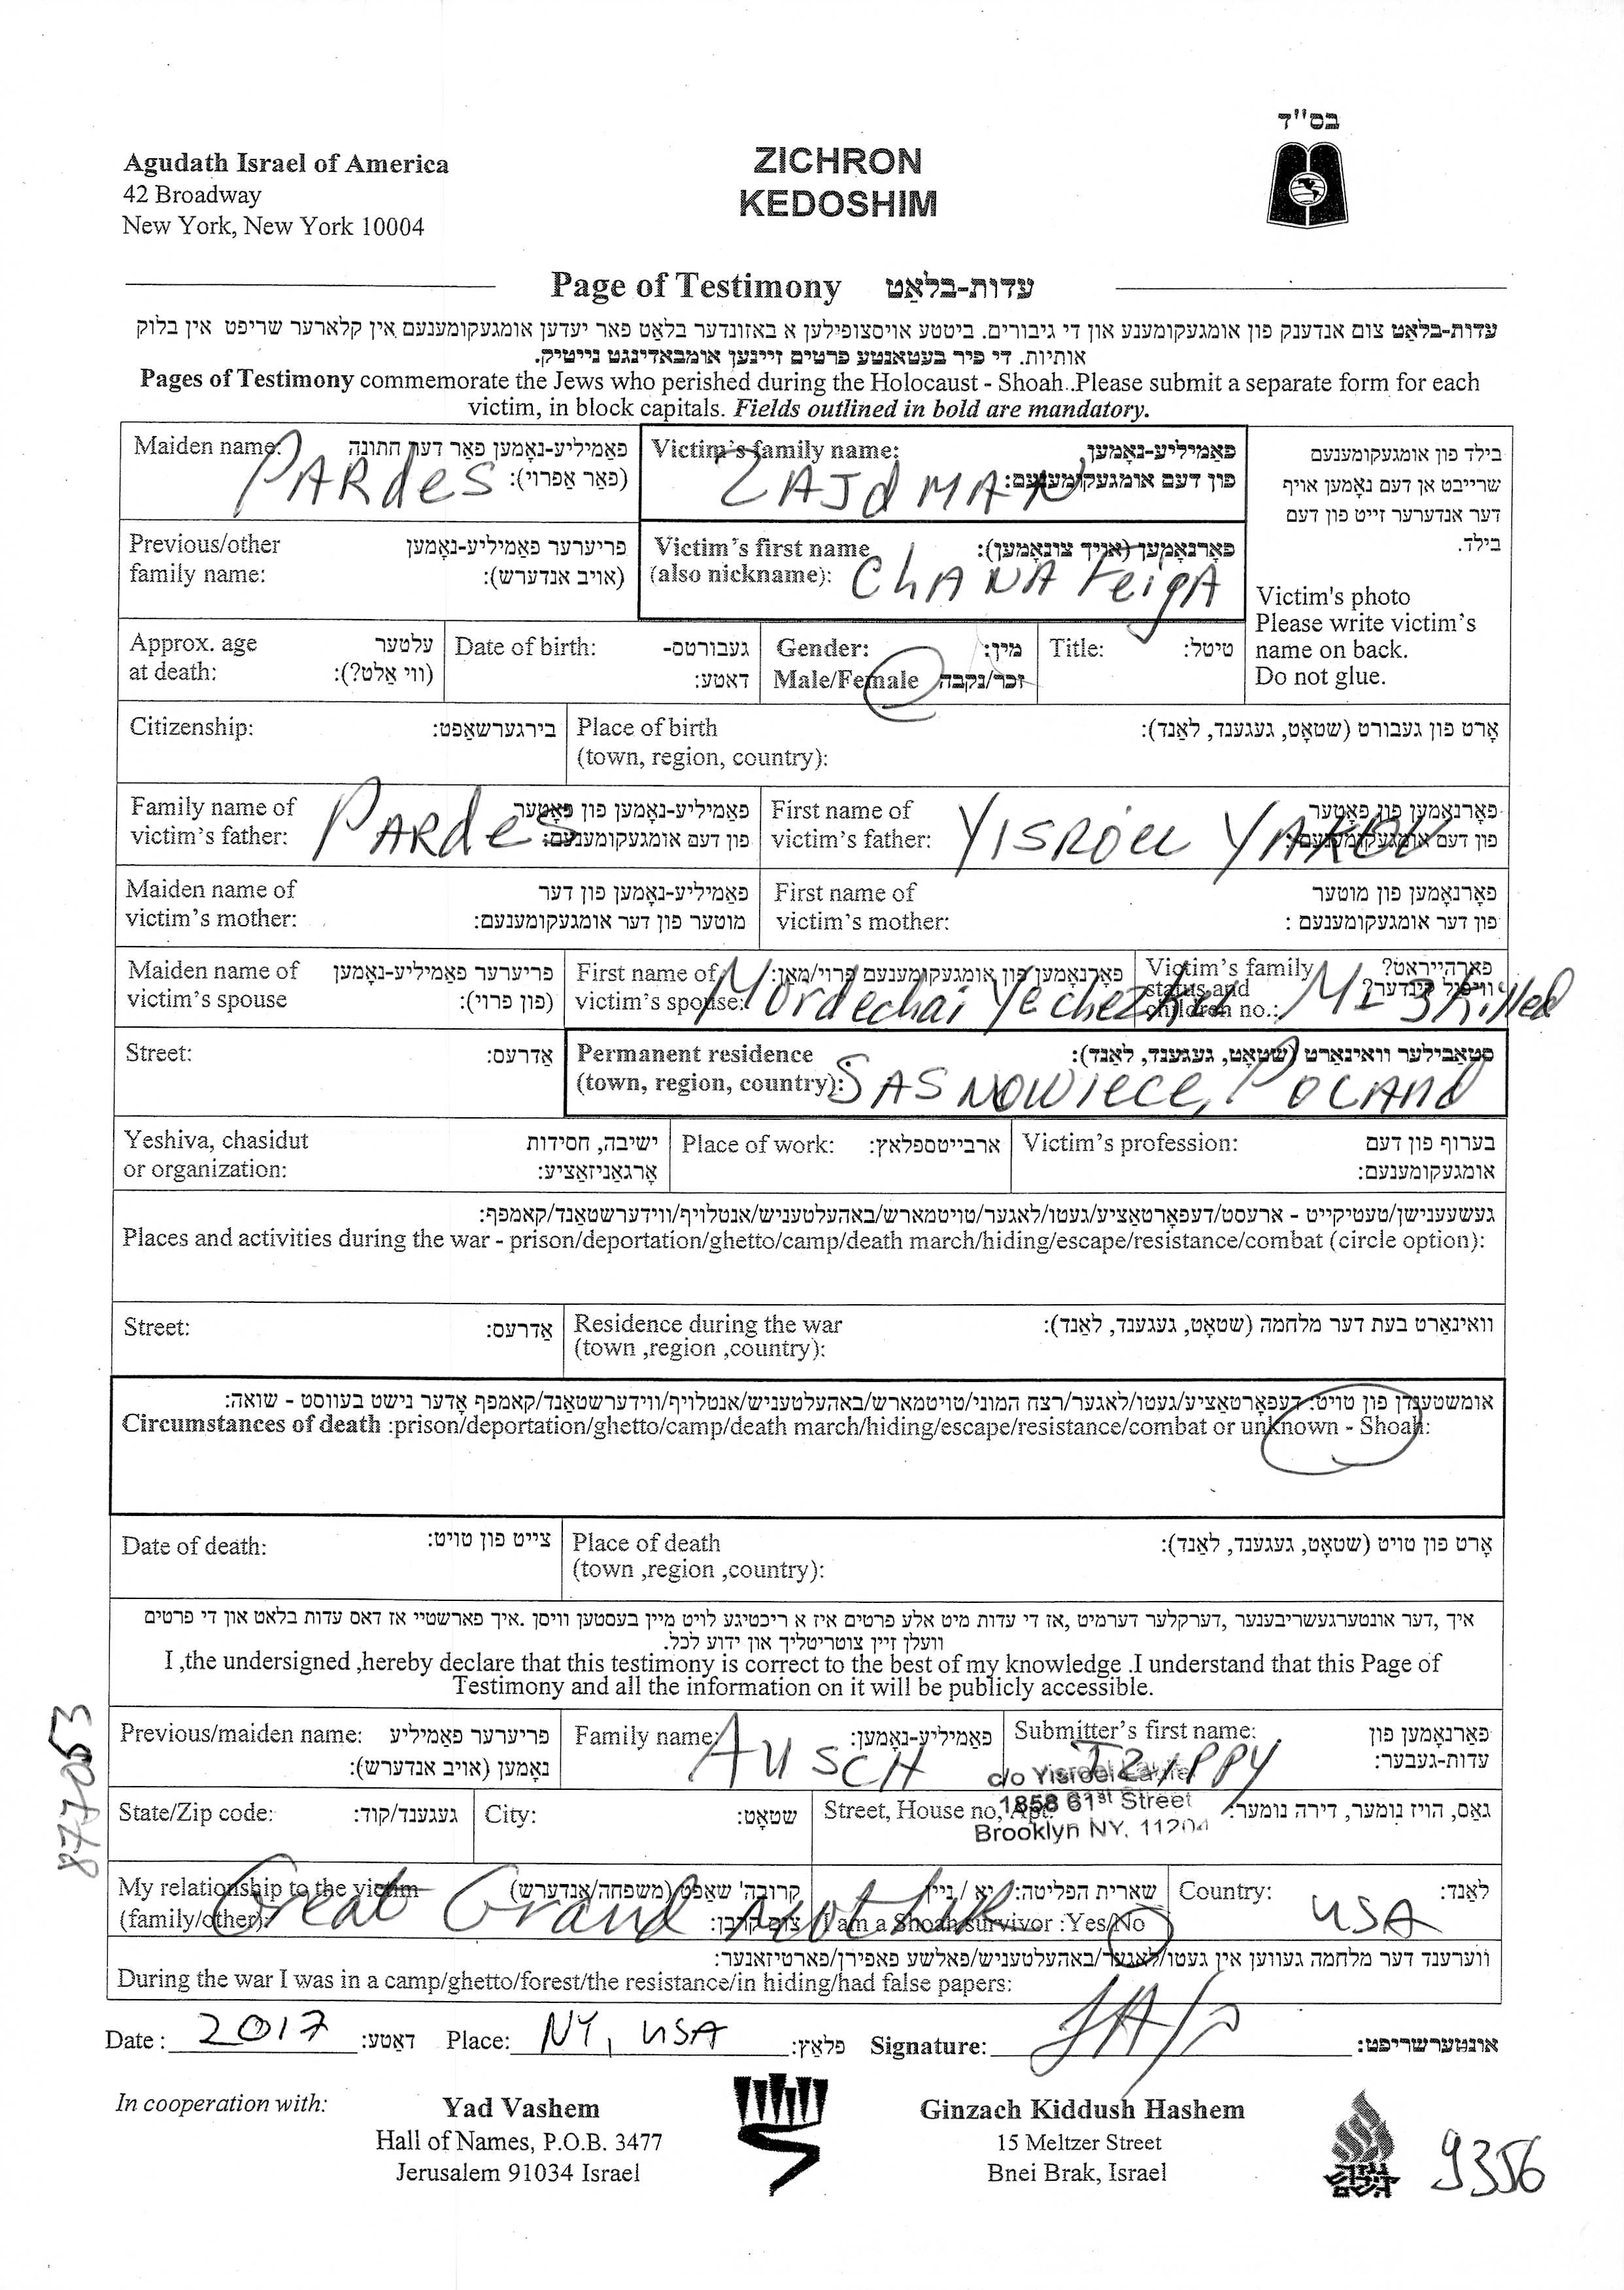 בס"ד
Agudath Israel of America
42 Broadway
New York, New York 10004
ZICHRON
KEDOSHIM
Page of Testimony עדות-בלאַט
עדות-בלאַט צום אנדענק פון אומגעקומענע און די גיבורים. ביטטע אויסצופילען א באזונדער בלאט פאר יעדען אומגעקומענעם אין קלארער שריפט אין בלוק
אותיות. די פיר בעטאנטע פרטים זיינען אומבאדינגט נייטיק.
Pages of Testimony commemorate the Jews who perished during the Holocaust - Shoah. Please submit a separate form for each
victim, in block capitals. Fields outlined in bold are mandatory.
Maiden name: פאַמיליע-נאָמען פאַר דער חתונה
PARdes (פאר אפרוי):
Victim's family name: פאַמיליע-נאָמען
ZAJdMAN פון דעם אומגעקומענעם:
בילד פון אומגעקומענעם
שרייבט אן דעם נאָמען אויף
דער אנדערער זייט פון דעם
בילד.
Victim's photo
Please write victim's
name on back.
Do not glue.
Previous/other פריערער פאַמיליע-נאָמען
family name: (אויב אנדערש):
Victim's first name פאָרנאָמען (אויך צונאָמען):
(also nickname): ChANA FeigA
Approx. age עלטער
at death: (ווי אַלט?):
Date of birth: געבורטס-
דאַטע:
Gender: מין:
Male/Female זכר/נקבה
Title: טיטל:
Citizenship: בירגערשאַפט:
Place of birth אָרט פון געבורט (שטאָט, געגענד, לאַנד):
(town, region, country):
Family name of פאַמיליע-נאָמען פון פאָטער
victim's father: PARdes פון דעם אומגעקומענעם:
First name of פאָרנאָמען פון פאָטער
victim's father: YISROEL YAKOV פון דעם אומגעקומענעם:
Maiden name of פאַמיליע-נאָמען פון דער
victim's mother: מוטער פון דער אומגעקומענעם:
First name of פאָרנאָמען פון מוטער
victim's mother: פון דער אומגעקומענעם :
Maiden name of פריערער פאַמיליע-נאָמען
victim's spouse (פון פרוי):
First name of פאָרנאָמען פון אומגעקומענעם פרוי/מאַן:
victim's spouse: Mordechai Yechezkel
Victim's family פארהייראט?
status and וויפיל קינדער?
children no.: M - 3 killed
Street: אַדרעס:
Permanent residence סטאַבילער וואוינאָרט (שטאָט, געגענד, לאַנד):
(town, region, country): SASNOWIECE, POLANd
Yeshiva, chasidut ישיבה, חסידות
or organization: אָרגאַניזאַציע:
Place of work: ארבייטספלאץ:
Victim's profession: בערוף פון דעם
אומגעקומענעם:
געשעענישן/טעטיקייט - ארעסט/דעפאָרטאַציע/געטו/לאגער/טויטמארש/באהעלטעניש/אנטלויף/ווידערשטאַנד/קאמפף:
Places and activities during the war - prison/deportation/ghetto/camp/death march/hiding/escape/resistance/combat (circle option):
Street: אַדרעס:
Residence during the war וואוינאָרט בעת דער מלחמה (שטאָט, געגענד, לאַנד):
(town ,region ,country):
אומשטענדן פון טויט: דעפאָרטאַציע/געטו/לאגער/רצח המוני/טויטמארש/באהעלטעניש/אנטלויף/ווידערשטאַנד/קאמפף אָדער נישט בעווסט - שואה:
Circumstances of death :prison/deportation/ghetto/camp/death march/hiding/escape/resistance/combat or unknown - Shoah:
Date of death: צייט פון טויט:
Place of death אָרט פון טויט (שטאָט, געגענד, לאַנד):
(town ,region ,country):
איך ,דער אונטערגעשריבענער ,דערקלער דערמיט ,אז די עדות מיט אלע פרטים איז א ריכטיגע לויט מיין בעסטען וויסן .איך פארשטיי אז דאס עדות בלאט און די פרטים
וועלן זיין צוטריטליך און ידוע לכל.
I ,the undersigned ,hereby declare that this testimony is correct to the best of my knowledge .I understand that this Page of
Testimony and all the information on it will be publicly accessible.
Previous/maiden name: פריערער פאַמיליע
נאָמען (אויב אנדערש):
Family name: AUSCH פאַמיליע-נאָמען:
Submitter's first name: פאַרנאָמען פון
TZIPPY עדות-געבער:
c/o Yisroel
1858 61st Street
Brooklyn NY. 11204
State/Zip code: געגענד/קוד:
City: שטאָט:
Street, House no, Apt: גאס, הויז נומער, דירה נומער:
My relationship to the victim קרובה' שאפט (משפחה/אנדערש)
(family/other): Great Grand mother צום קרבן:
שארית הפליטה: יא / ניין
I am a Shoah survivor :Yes/No
Country: USA לאַנד:
ווערענד דער מלחמה געווען אין געטו/לאגער/באהעלטעניש/פאלשע פאפירן/פארטיזאנער:
During the war I was in a camp/ghetto/forest/the resistance/in hiding/had false papers:
Date : 2017 דאַטע: Place: NY, USA פלאַץ: Signature: אונטערשריפט:
In cooperation with:
Yad Vashem
Hall of Names, P.O.B. 3477
Jerusalem 91034 Israel
Ginzach Kiddush Hashem
15 Meltzer Street
Bnei Brak, Israel
9356
877053